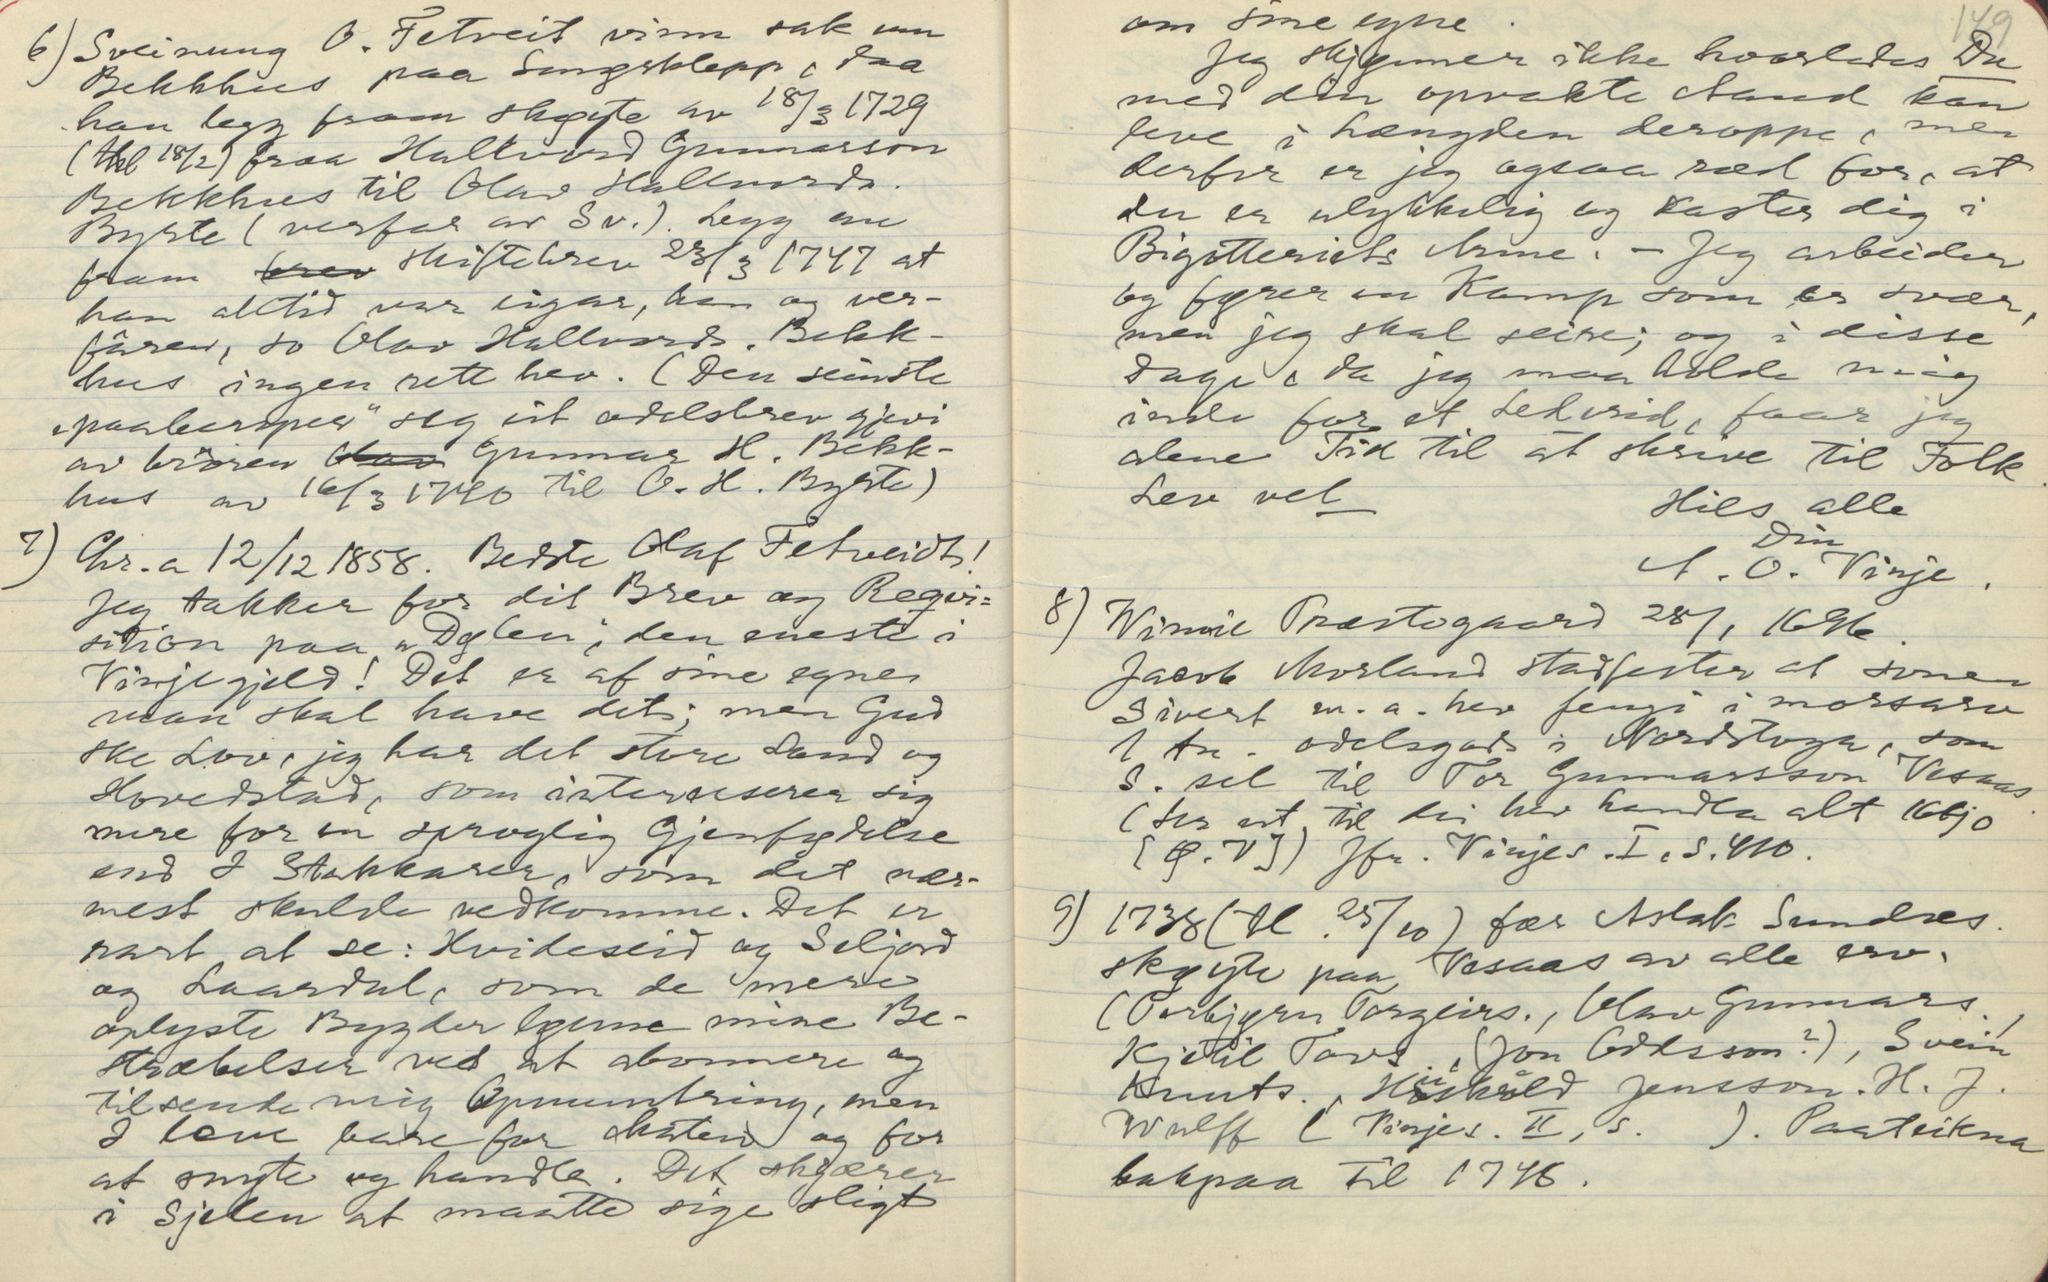 6) Sveinung O. Fetveit vinn sak um
Bekkhus paa Songsklepp, daa
han legg fram skøyte av 18/3 1729
(tkl 18/2) fraa Hallvord Gunnarson
Bekkhus til Olav Hallvords.
Byrte (verfar av Sv.). Legg au
fram brev skiftebrev 23/3 1747 at
han alltid var eigar, han og ver-
faren, so Olav Hallvords. Bekk-
hus ingen rett hev. (Den seinste
"paaberoper" seg eit odelsbrev gjevi
av broren Olav Gunnar H. Bekk-
hus av 16/3 1740 til O. H. Byrte)
7) Chr.a 12/12 1858. Bedste Olaf Fetveidt!
Jeg takker for dit Brev og Reqvi=
sition paa "Dølen", den eneste i
Vinjegjeld! Det er af sine egne
man skal have det; men Gud
ske Lov, jeg har det store Land og
Hovedstad, som interesserer sig
mere for en sproglig Gjenfødelse
end I Stakkarer, som det nær-
mest skulde vedkomme. Det er
rart at se: Hvideseid og Seljord
og Laardal, som de mere
oplyste Bygder lønne mine Be-
stræbelser ved at abonnere og
tilsende mig Opmuntring, men
I leve bare for Maten og for
at snyte og handle. Det skjærer
i Sjelen at maatte sige sligt
149
om sine egne.
Jeg skjønner ikke hvorledes Du
med din opvakte Aand kan
leve i Længden deroppe, men
derfor er jeg ogsaa ræd for, at
du er ulykkelig og kaster dig i
Bigotteriets Arme. – Jeg arbeider
og fører en Kamp som er svær,
men jeg skal seire; og i disse
Dage, da jeg maa holde mig
inde for et Ledvrid, faar jeg
alene Tid til at skrive til Folk.
Lev vel
Hils alle
Din
A. O. Vinje.
8) Vinie Præstegaard 28/1 1696.
Jacob Morland stadfester at sonen
Sivert m. a. hev fengi i morsarv
1 tn. odelsgods i Nordstoga, som
S. sel til Tor Gunnarsson Vesaas.
(Ser ut til dei hev handla alt
[Ø. V]) Jfr. Vinjes. I, s. 410.
9) 1738 (tl. 25/10) fær Aslak Sundres.
skøyte paa Vesaas av alle erv.
(Torbjørn Torgeirs., Olav Gunnars.,
Kjetil Tovs., (Jon Oddsson?), Svein
Knuts., Høskuld Jensson. H. J.
Wulff (Vinjes. II, s. ). Paateikna
bakpaa til 1746.